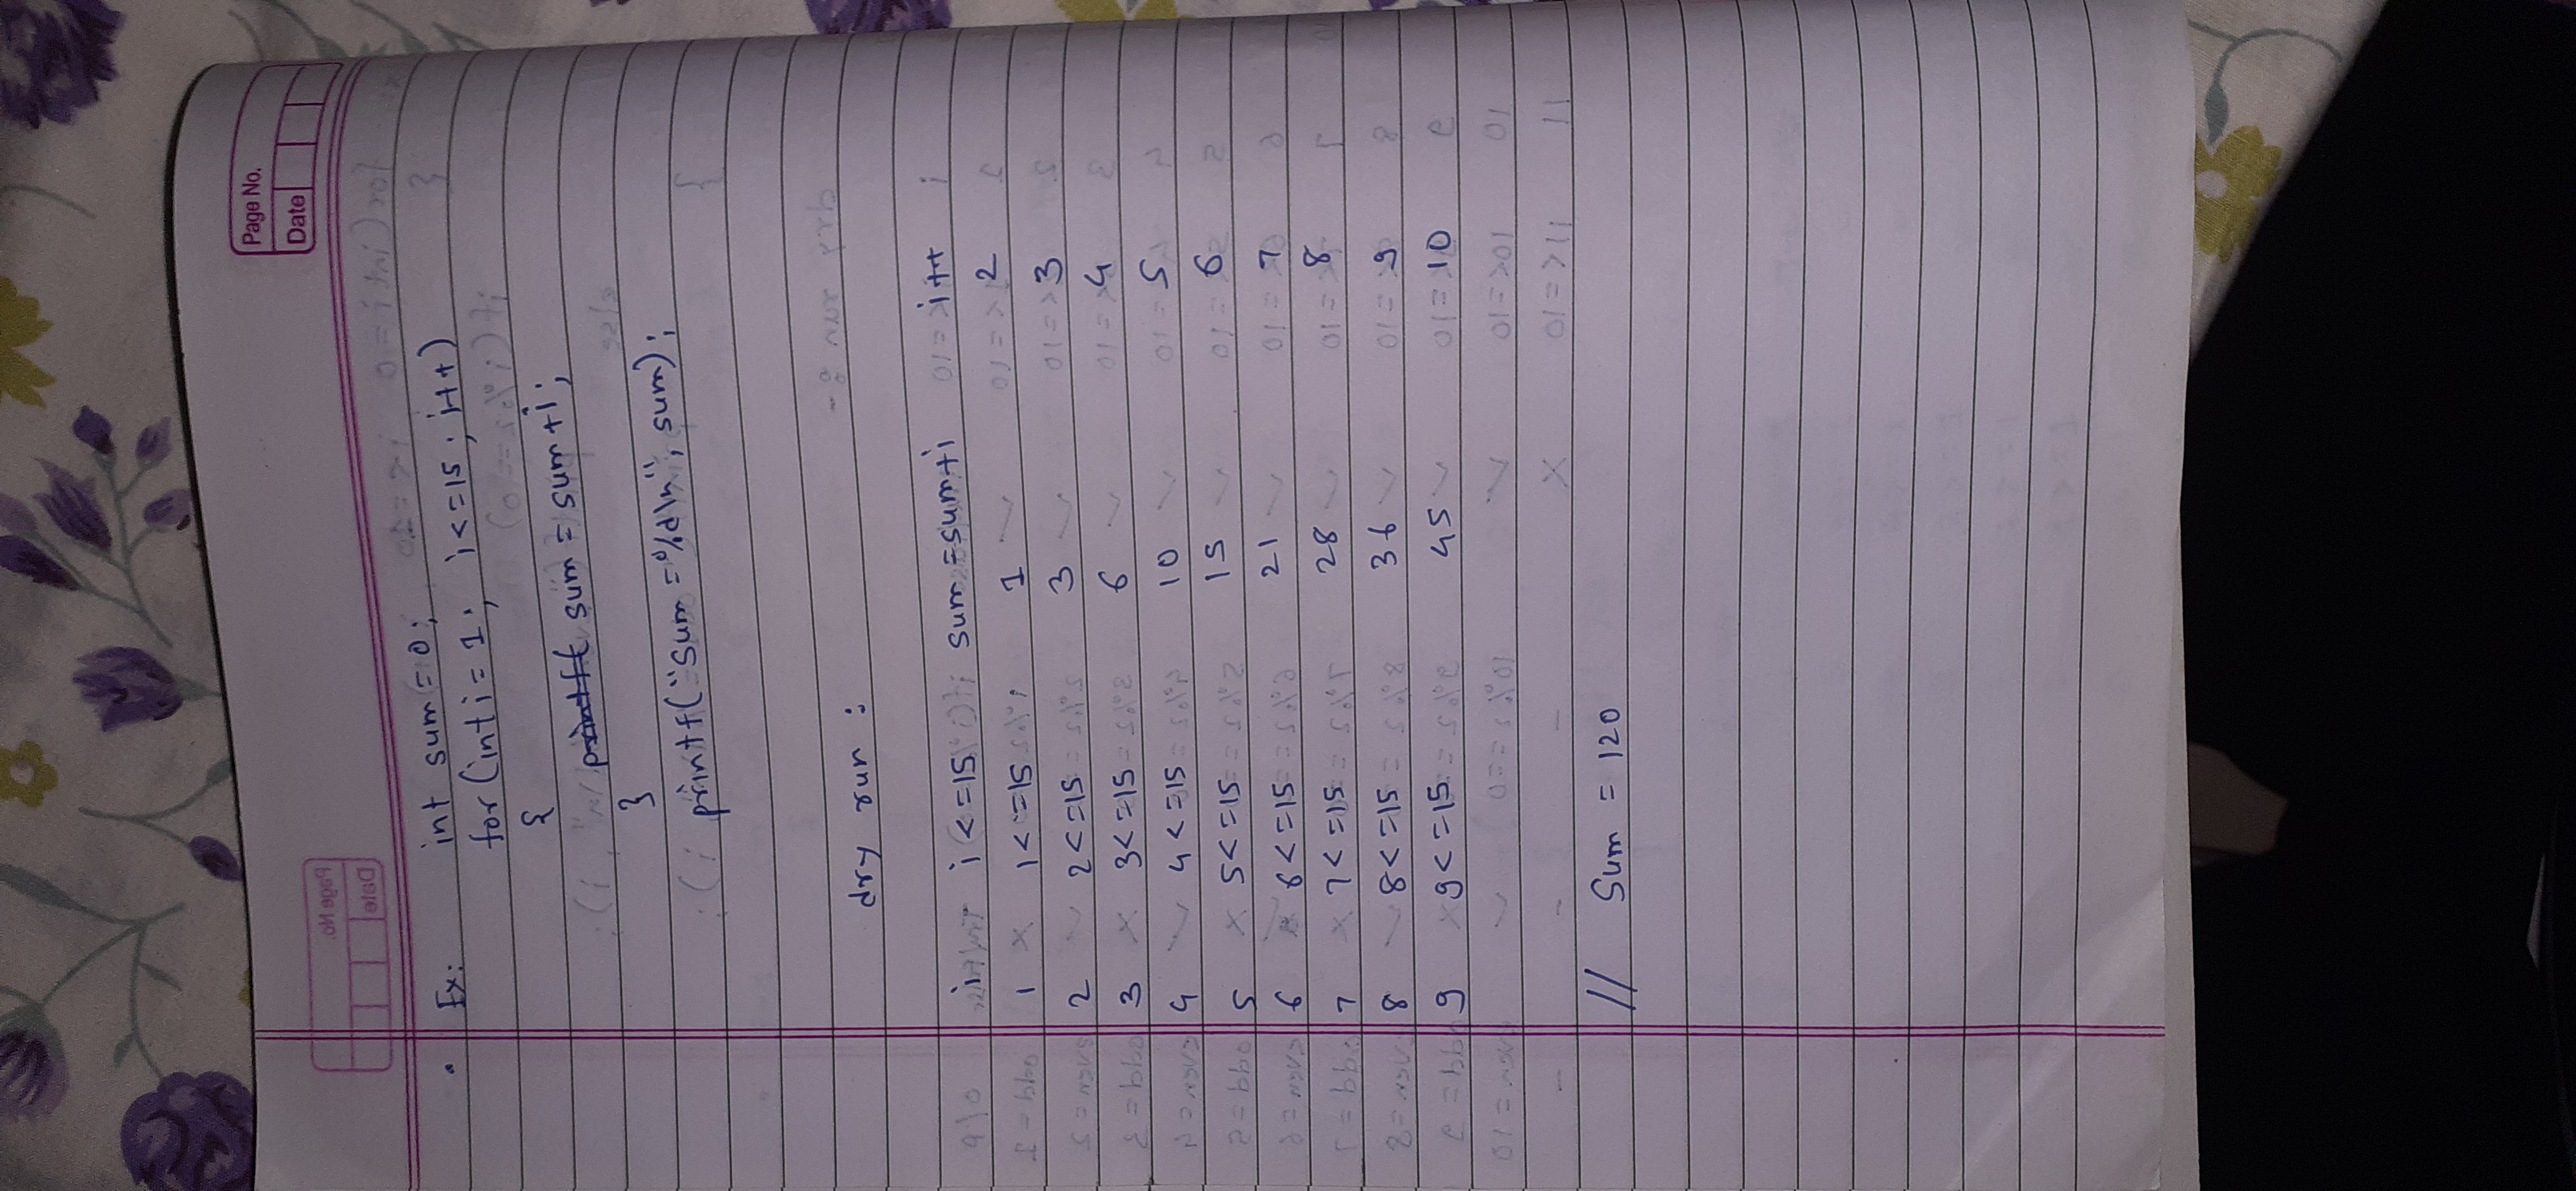 Page No.
Date
Ex: int sum = 0;
for (int i = 1; i <= 15; i++)
{
sum = sum + i;
}
printf("Sum = %d\n", sum);
dry run :
i i <= 15 sum = sum + i i++
1 1 <= 15 1 2
2 2 <= 15 3 3
3 3 <= 15 6 4
4 4 <= 15 10 5
5 5 <= 15 15 6
6 6 <= 15 21 7
7 7 <= 15 28 8
8 8 <= 15 36 9
9 9 <= 15 45 10
// Sum = 120